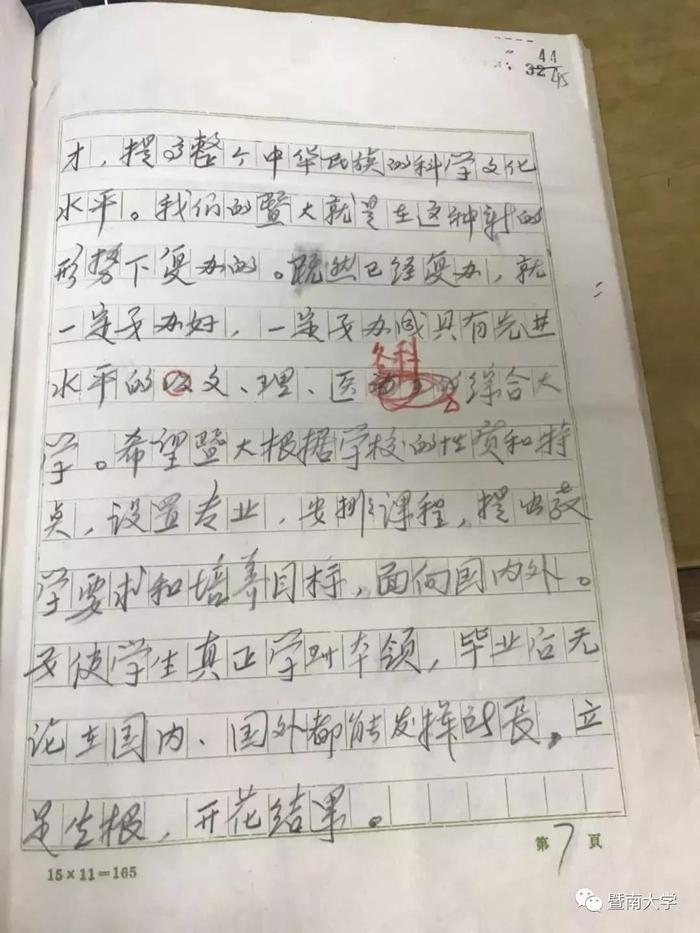 44
32 45
才，提高整个中华民族的科学文化
水平。我们的暨大就是在这种新的
形势下复办的。既然已经复办，就
一定要办好，一定要办成具有先进
各科
水平的 文、理、医 的综合大
学。希望暨大根据学校的性质和特
点，设置专业，安排课程，提出教
学要求和培养目标，面向国内外。
要使学生真正学到本领，毕业后无
论在国内、国外都能发挥所长，立
足生根，开花结果。
第7頁
15×11=165
暨南大学